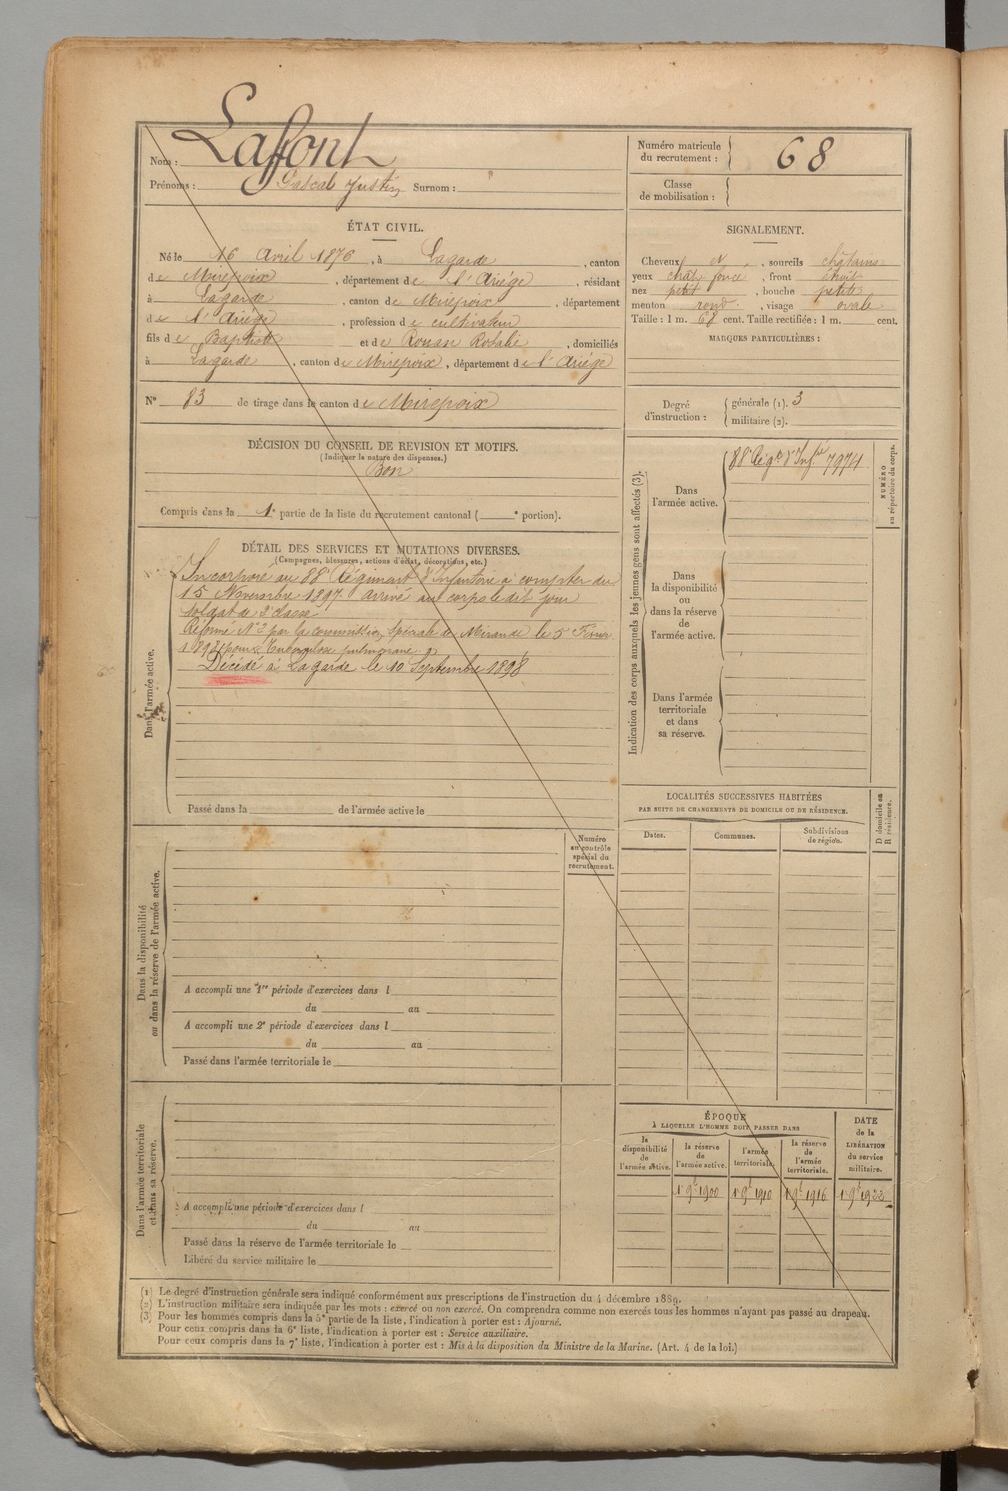 Nom : Laffont
Prénoms : Pascal Justin Surnom : "
Numéro matricule
du recrutement : 68
Classe
de mobilisation :
ÉTAT CIVIL.
Né le 16 Avril 1876, à Lagarde, canton
de Mirepoix, département de l'Ariège, résidant
à Lagarde, canton de Mirepoix, département
de l'Ariège, profession de cultivateur
fils de Baptiste et de Rouan Rosalie, domiciliés
à Lagarde, canton de Mirepoix, département de l'Ariége
N° 83 de tirage dans le canton de Mirepoix
SIGNALEMENT.
Cheveux et, sourcils châtains
yeux chât foncé, front étroit
nez petit, bouche petite
menton rond, visage ovale
Taille : 1 m. 68 cent. Taille rectifiée : 1 m. cent.
MARQUES PARTICULIÈRES :
Degré
d'instruction :
générale (1). 3
militaire (2).
DÉCISION DU CONSEIL DE REVISION ET MOTIFS.
(Indiquer la nature des dispenses.)
Bon
Compris dans la 1e partie de la liste du recrutement cantonal ( e portion).
DÉTAIL DES SERVICES ET MUTATIONS DIVERSES.
(Campagnes, blessures, actions d'éclat, décorations, etc.)
Dans l'armée active.
Incorporé au 88e Régiment d'Infanterie à compter du
15 Novembre 1897 arrivé au corps le dit jour
soldat de 2 classe
Réformé N° 2 par la commission spéciale de Mirande le 5 Février
1898 pour Tuberculose pulmonaire
Décédé à Lagarde le 10 Septembre 1898
Passé dans la de l'armée active le
Indication des corps auxquels les jeunes gens sont affectés (3).
Dans
l'armée active.
88e Rég. d'Infie 7974
NUMÉRO
au répertoire du corps.
Dans
la disponibilité
ou
dans la réserve
de
l'armée active.
Dans l'armée
territoriale
et dans
sa réserve.
LOCALITÉS SUCCESSIVES HABITÉES
PAR SUITE DE CHANGEMENTS DE DOMICILE OU DE RÉSIDENCE.
Dates.
Communes.
Subdivisions
de région.
D domicile ou
R résidence.
Dans la disponibilité
ou dans la réserve de l'armée active.
Numéro
au contrôle
spécial du
recrutement.
A accompli une 1re période d'exercices dans l
du au
A accompli une 2e période d'exercices dans l
du au
Passé dans l'armée territoriale le
Dans l'armée territoriale
et dans sa réserve.
A accompli une période d'exercices dans l
du au
Passé dans la réserve de l'armée territoriale le
Libéré du service militaire le
ÉPOQUE
À LAQUELLE L'HOMME DOIT PASSER DANS
la
disponibilité
de
l'armée active.
la réserve
de
l'armée active.
l'armée
territoriale.
la réserve
de
l'armée
territoriale.
DATE
de la
LIBÉRATION
du service
militaire.
1er 9bre 1900 1er 9bre 1910 1er 9bre 1916 1er 9bre 1923
(1) Le degré d'instruction générale sera indiqué conformément aux prescriptions de l'instruction du 4 décembre 1889.
(2) L'instruction militaire sera indiquée par les mots : exercé ou non exercé. On comprendra comme non exercés tous les hommes n'ayant pas passé au drapeau.
(3) Pour les hommes compris dans la 5e partie de la liste, l'indication à porter est : Ajourné.
Pour ceux compris dans la 6e liste, l'indication à porter est : Service auxiliaire.
Pour ceux compris dans la 7e liste, l'indication à porter est : Mis à la disposition du Ministre de la Marine. (Art. 4 de la loi.)